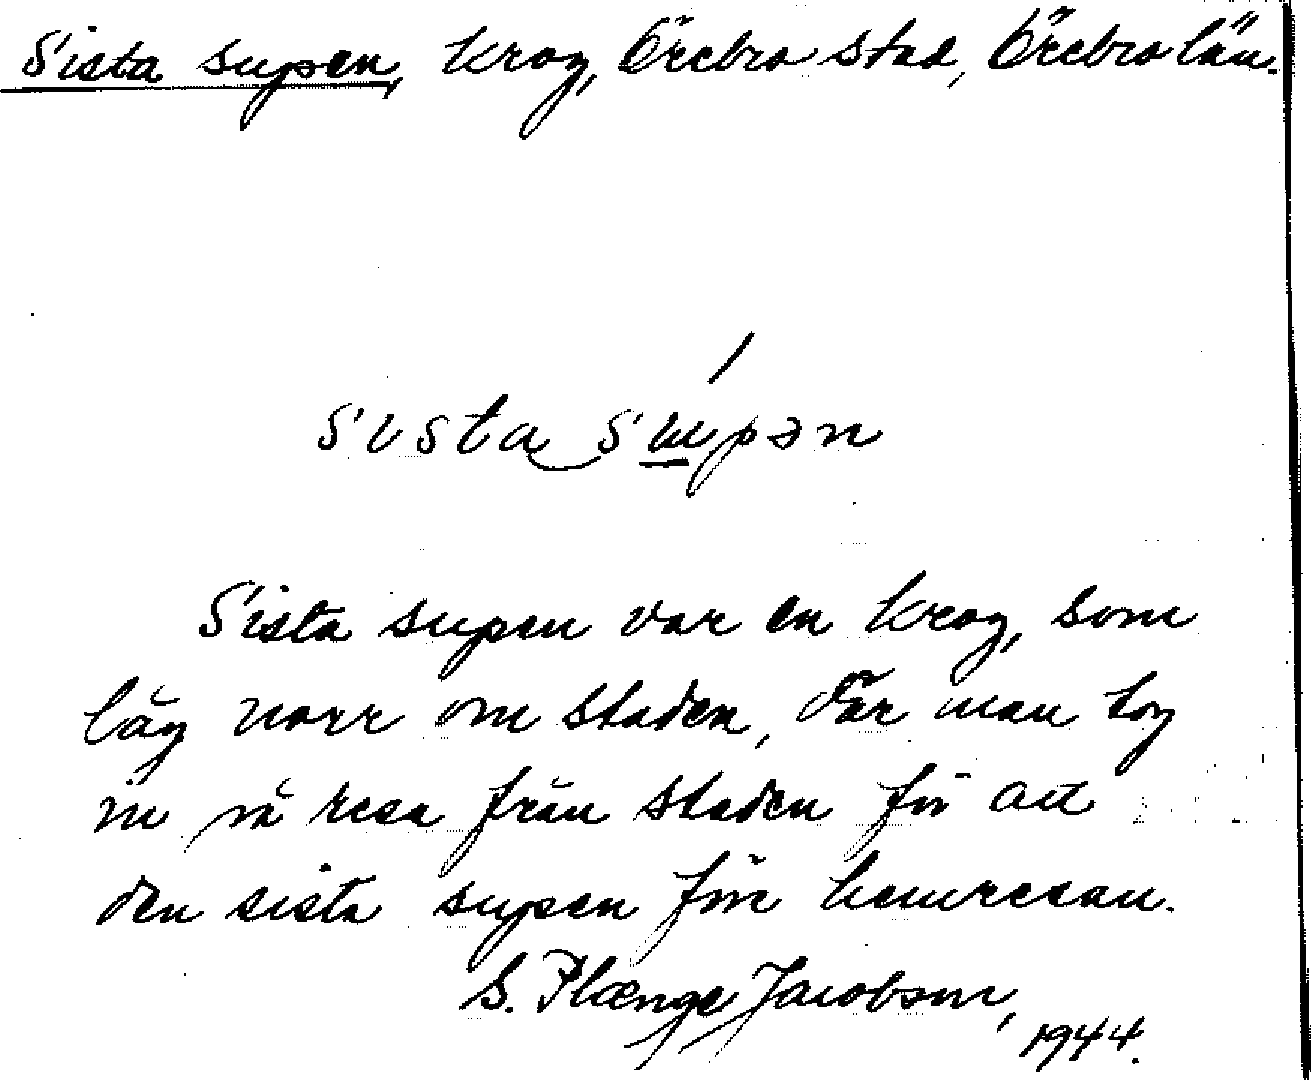 Sista supen, krog, Örebro stad, Örebro län.
sısta‿sꭒpən
Sista supen var en krog, som
låg norr om staden, där man tog
in på resa från staden för att
den sista supen före hemresan.
S. Plænge Jacobson,
1944.